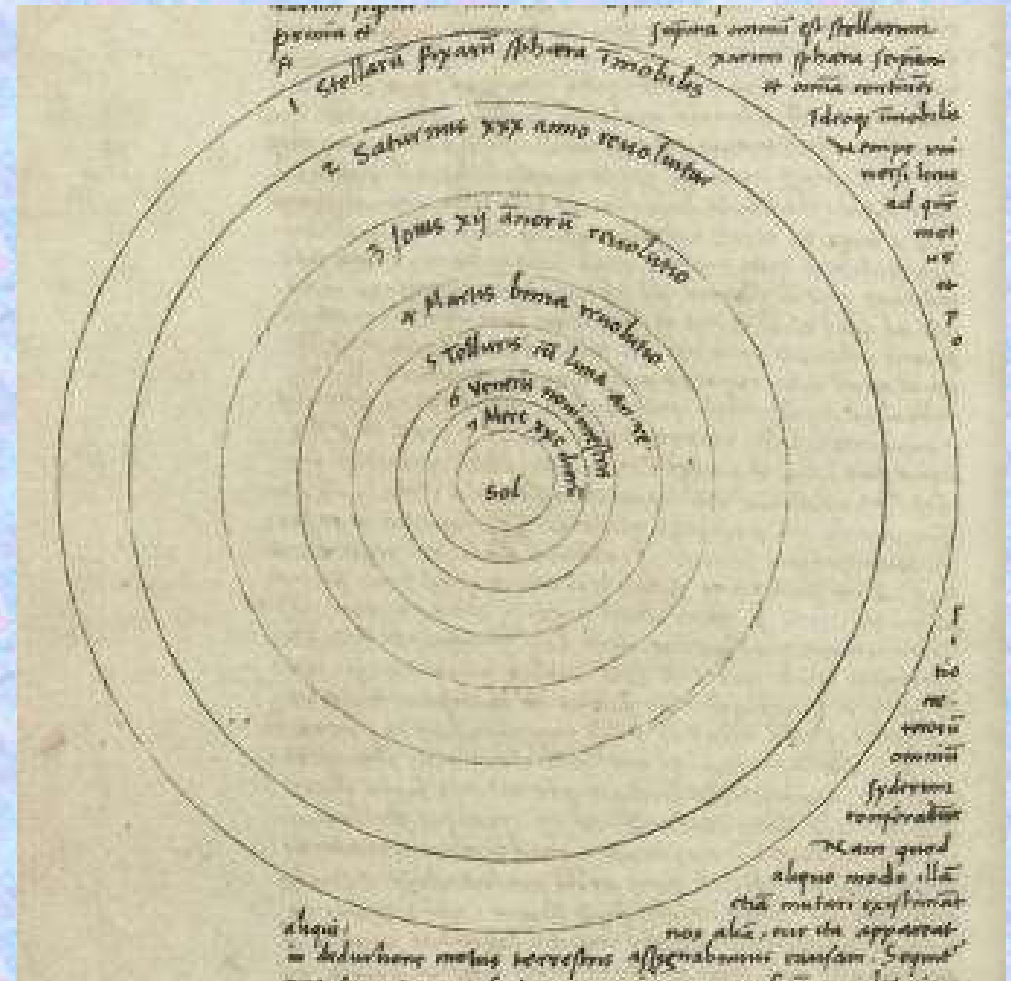 prima et suprema omniū est stellarum
fi xarum sphæra seipsam
et omnia continēs
Ideoqȝ īmobilis
Nempe uni
uersi locus
ad quē
mot
us
et
p
o
1 Stellarū fixarū sphæra īmobilis
2 Saturnus xxx anno reuoluitur
3 Iouis xij annorū reuolutio
4 Martis bima reuolutio
5 Telluris cū luna an re
6 Veneris nonimestris
7 Merc xxc dierū
Sol
s
i
tio
ce
terorū
omniū
syderum
conferatur
Nam quod
aliquo modo illā
etiā mutari existimāt
aliqui: nos aliā, cur ita appareat
in deductione motus terrestris assignabimus causam. Sequitur